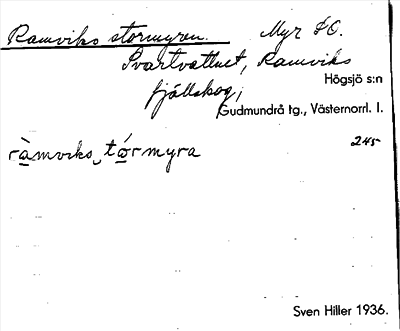 Ramviks stormyren. Myr SO.
Svartvattnet, Ramviks
fjällskog,
Högsjö s:n
Gudmundrå tg., Västernorrl. l.
245
ràmviks tórmyra
Sven Hiller 1936.